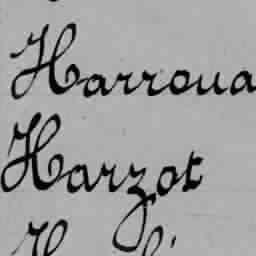 Harroua
Harzot